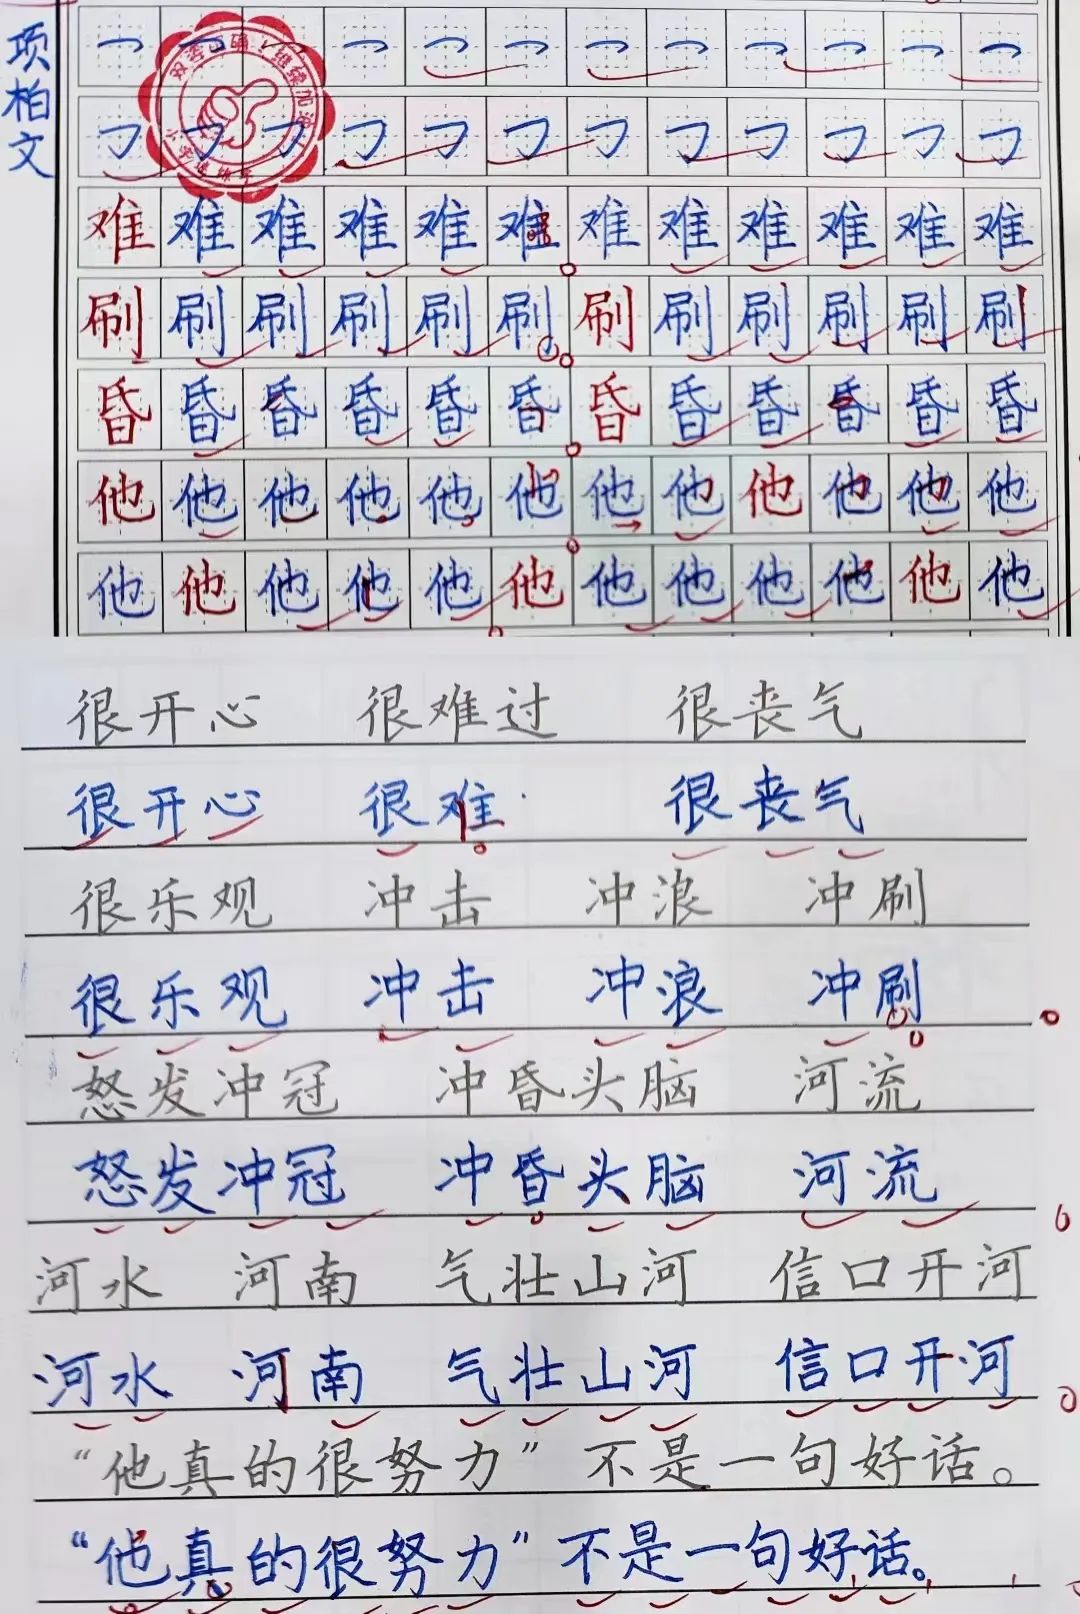 项柏文
难难难难难难难难难难难难
刷刷刷刷刷刷刷刷刷刷刷刷
昏昏昏昏昏昏昏昏昏昏昏昏
他他他他他他他他他他他他
他他他他他他他他他他他他
很开心 很难过 很丧气
很开心 很难 很丧气
很乐观 冲击 冲浪 冲刷
很乐观 冲击 冲浪 冲刷
怒发冲冠 冲昏头脑 河流
怒发冲冠 冲昏头脑 河流
河水 河南 气壮山河 信口开河
河水 河南 气壮山河 信口开河
“他真的很努力”不是一句好话。
“他真的很努力”不是一句好话。